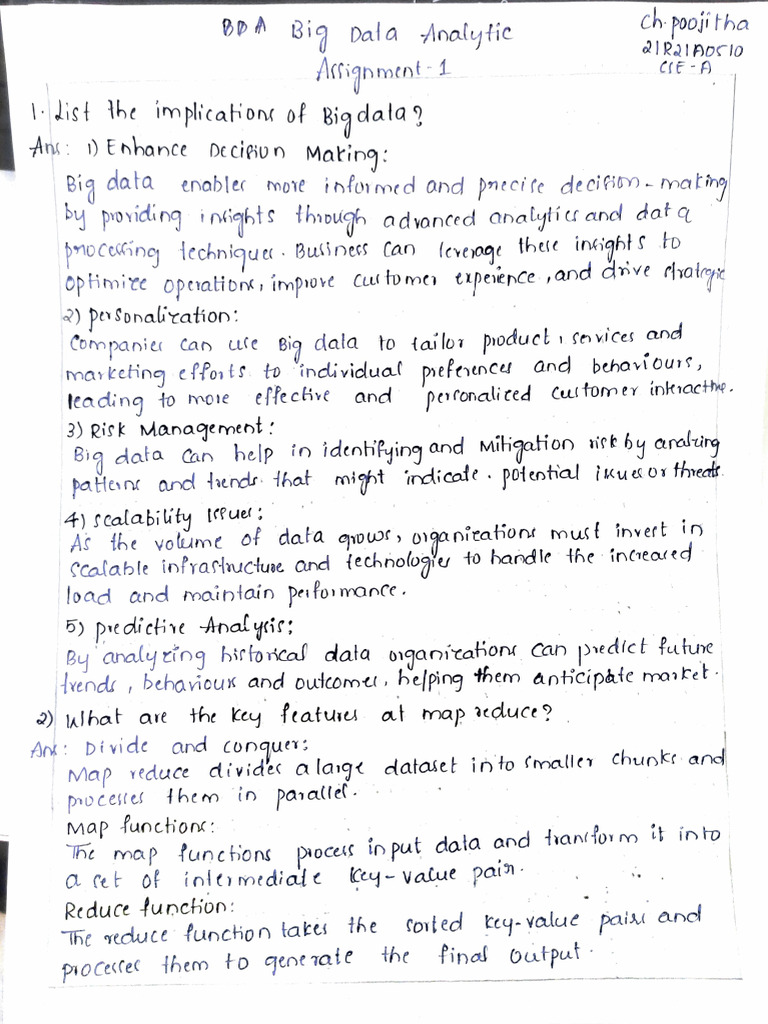 BDA Big Data Analytic
Ch. poojitha
21R21A0510
CSE-A
Assignment-1
1. List the implications of Big data?
Ans: 1) Enhance Decision Making:
Big data enables more informed and precise decision-making
by providing insights through advanced analytics and data
processing techniques. Business can leverage these insights to
optimize operations, improve customer experience, and drive strategic
2) personalization:
Companies can use Big data to tailor product, services and
marketing efforts to individual preferences and behaviours,
leading to more effective and personalized customer interactive.
3) Risk Management:
Big data can help in identifying and Mitigation risk by analzing
patterns and trends that might indicate. potential issues or threats
4) Scalability Issues:
As the volume of data grows, organizations must invest in
scalable infrastructure and technologies to handle the increased
load and maintain performance.
5) predictive Analysis:
By analyzing historical data organizations can predict future
trends, behaviours and outcomes, helping them anticipate market.
2) What are the key features at map reduce?
Ans: Divide and conquer:
Map reduce divides a large dataset into smaller chunks and
processes them in parallel.
Map functions:
The map functions process input data and transform it into
a set of intermediate key-value pair.
Reduce function:
The reduce function takes the sorted key-value pairs and
processes them to generate the final output.